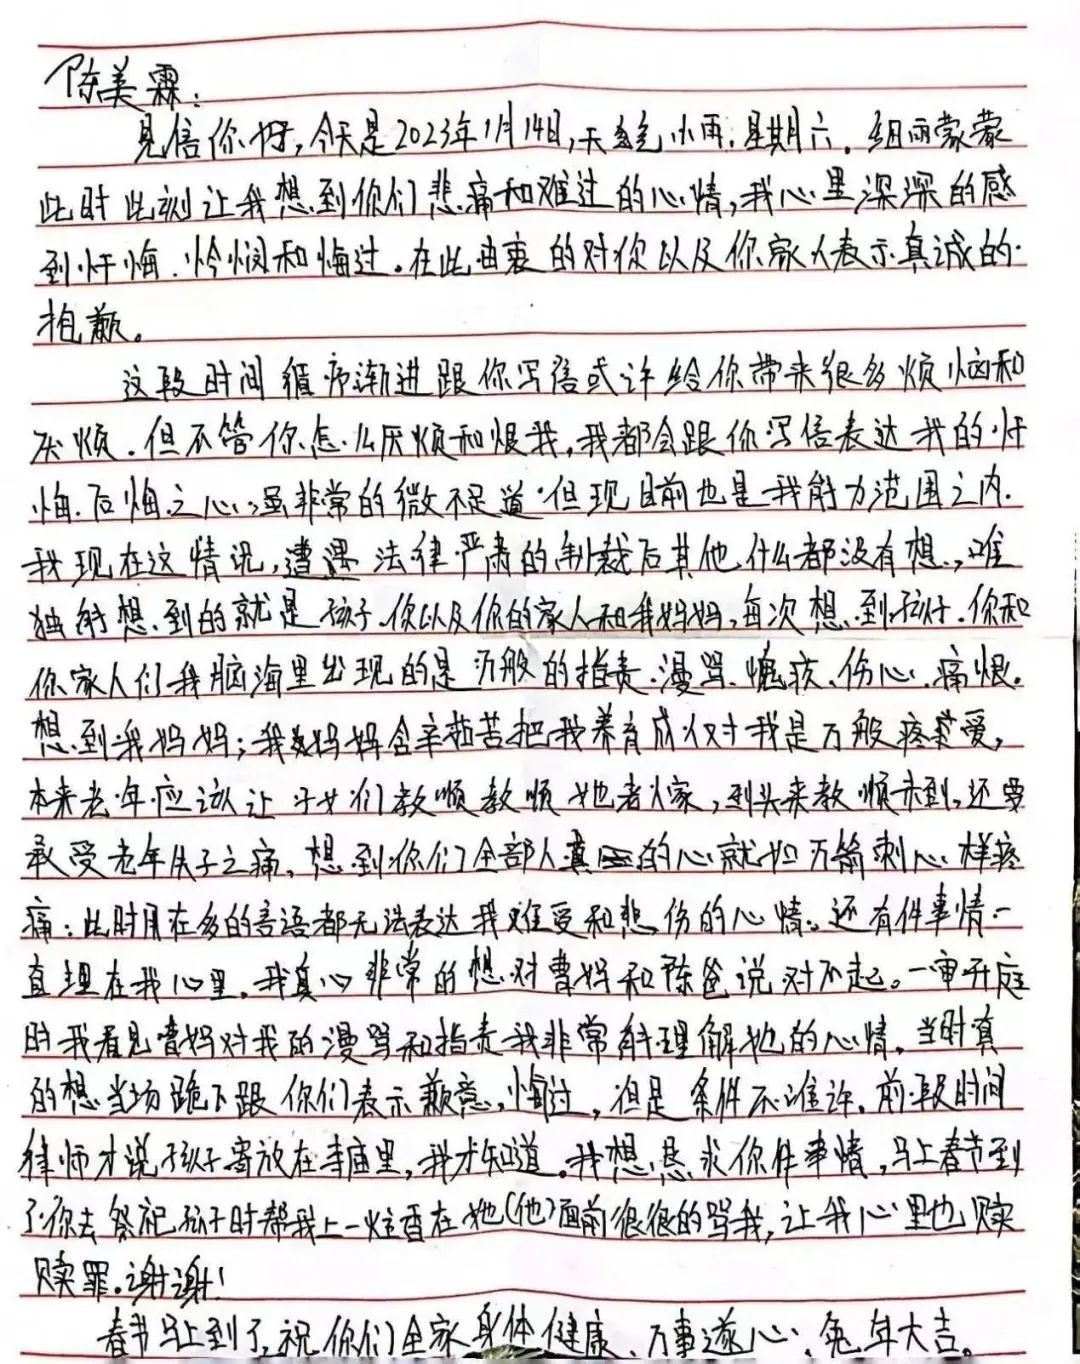 陈美霖：
见信你好，今天是2023年1月14日，天气小雨.星期六．细雨蒙蒙
此时此刻让我想到你们悲痛和难过的心情，我心里深深的感
到忏悔.怜悯和悔过。在此由衷的对你以及你家人表示真诚的
抱歉。
这段时间循序渐进跟你写信或许给你带来很多烦恼和
厌烦．但不管你怎么厌烦和恨我，我都会跟你写信表达我的忏
悔.后悔之心.虽非常的微不足道.但现目前也是我能力范围之内.
我现在这情况，遭遇法律严肃的制裁后其他什么都没有想.，唯
独能想到的就是孩子.你以及你的家人和我妈妈，每次想到孩子.你和
你家人们我脑海里出现的是万般的指责.漫骂.愧疚、伤心.痛恨.
想到我妈妈；我妈妈含辛茹苦把我养育成人对我是万般疼爱，
本来老年应该让子女们教顺教顺她老人家，到头来教顺未到，还要
承受老年失子之痛，想到你们全部人真的心就如万箭刺心样疼
痛：此时用在多的言语都无法表达我难受和悲伤的心情。还有件事情一
直埋在我心里．我真心非常的想对曹妈和陈爸说对不起。一审开庭
时我看见曹妈对我的漫骂和指责我非常能理解她的心情．当时真
的想当场跪下跟你们表示歉意，悔过，但是条件不准许．前段时间
律师才说孩子寄放在寺庙里，我才知道。我想恳求你件事情，马上春节到
了你去祭祀孩子时帮我上一炷香在她（他）面前很很的骂我，让我心里也赎
赎罪。谢谢！
春节马上到了，祝你们全家身体健康、万事遂心、兔年大吉。